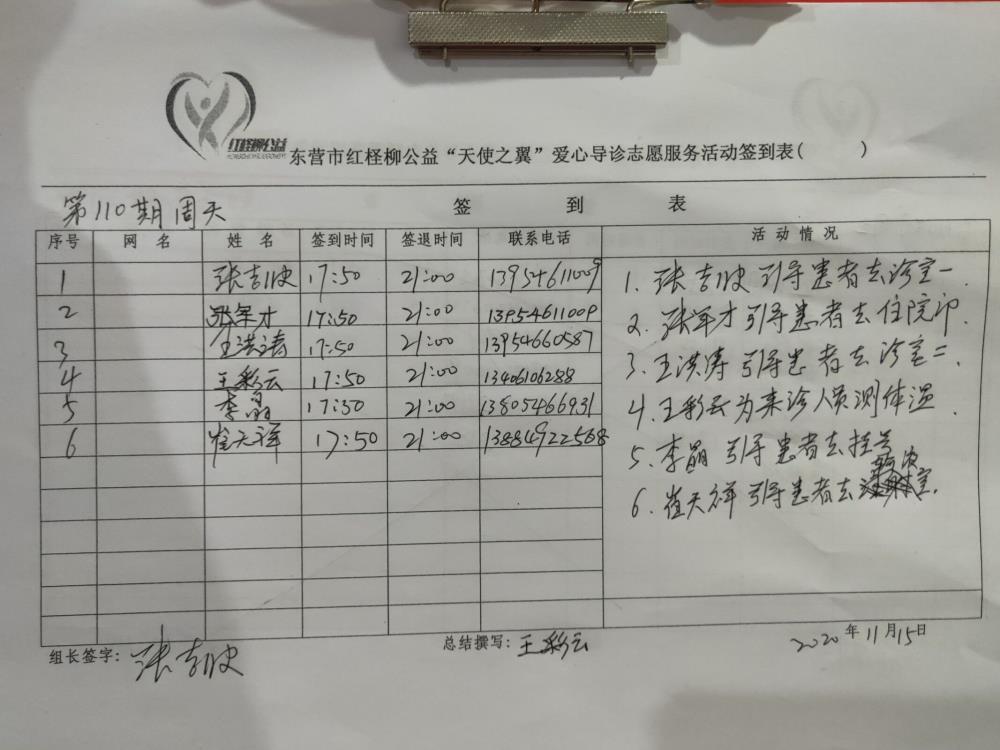 红柽柳公益
东营市红柽柳公益“天使之翼”爱心导诊志愿服务活动签到表( )
第110期周天
签 到 表
序号 网 名 姓 名 签到时间 签退时间 联系电话 活动情况
1 张吉 17:50 21:00 13954611009
2 张军才 17:50 21:00 13954611009
3 王洪涛 17:50 21:00 13954660587
4 王彩云 17:50 21:00 13406106288
5 李晶 17:50 21:00 13805466931
6 崔天祥 17:50 21:00 13884922568
1. 张吉 引导患者去诊室一.
2. 张军才 引导患者去住院部.
3. 王洪涛 引导患者去诊室二.
4. 王彩云为来诊人员测体温.
5. 李晶 引导患者去挂号
6. 崔天祥 引导患者去 室.
组长签字: 张吉
总结撰写: 王彩云
2020年11月15日